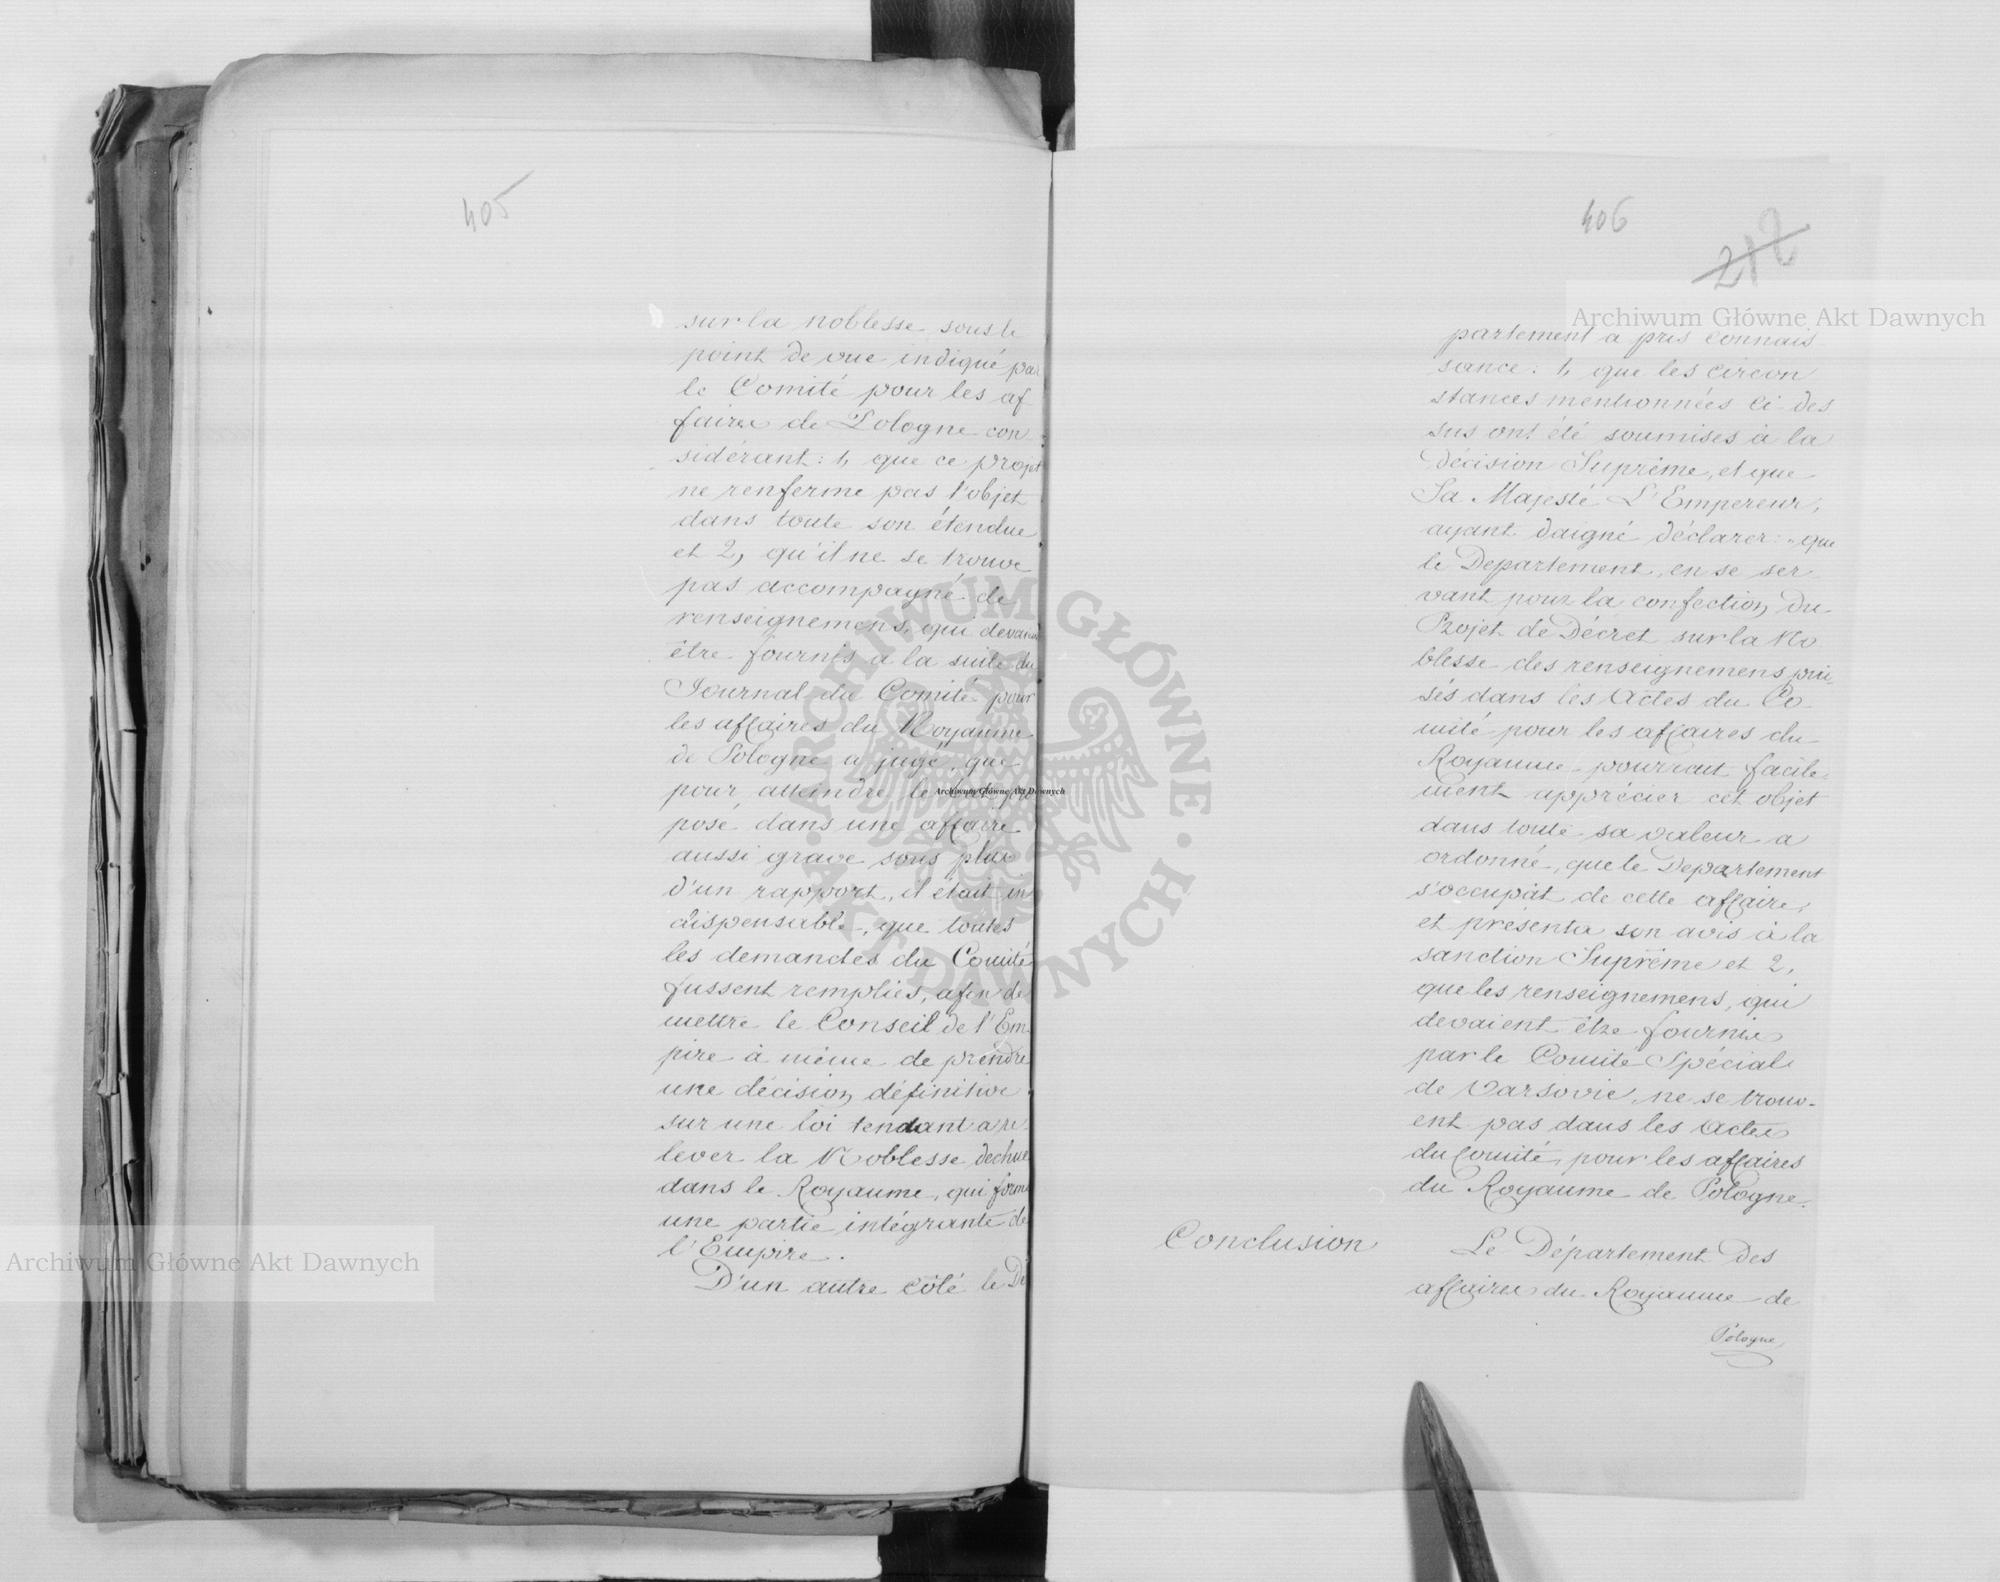 405
sur la noblesse sous le
point de vue indiqué par
le Comité pour les af
faires de Pologne con
sidérant: 1, que ce projet
ne renferme pas l'objet
dans toute son étendue
et 2, qu'il ne se trouve
pas accompagné de
renseignemens, qui devaient
être fournis a la suite du
Journal du Comité pour
les affaires du Royaume
de Pologne a jugé, que
pour atteindre le but pro
posé dans une affaire
aussi grave sous plus
d'un rapport, il était in
dispensable, que toutes
les demandes du Comité
fussent remplies, afin de
mettre le Conseil de l'Em
pire à même de prendre
une décision définitive
sur une loi tendant a re
lever la Noblesse dechue
dans le Royaume, qui forme
une partie intégrante de
l'Empire.
D'un autre côté le Dé
406
212
partement a pris connais
sance: 1, que les circon
stances mentionnées ci-des
sus ont été soumises à la
décision Suprême, et que
Sa Majesté L'Empereur,
ayant daigné déclarer: "que
le Departement, en se ser
vant pour la confection du
Projet de Décret sur la No
blesse des renseignemens pui
sés dans les Actes du Co
mité pour les affaires du
Royaume - pourrait facile
ment apprécier cet objet
dans toute sa valeur a
ordonné, que le Departement
s'occupât de cette affaire,
et présenta son avis à la
sanction Suprême et 2,
que les renseignemens, qui
devaient être fournis
par le Comité Spécial
de Varsovie, ne se trouv-
ent pas dans les Actes
du Comité pour les affaires
du Royaume de Pologne.
Conclusion
Le Département des
affaires du Royaume de
Pologne,
Archiwum Główne Akt Dawnych
Archiwum Główne Akt Dawnych
Archiwum Główne Akt Dawnych
ARCHIWUM GŁÓWNE · AKT DAWNYCH ·